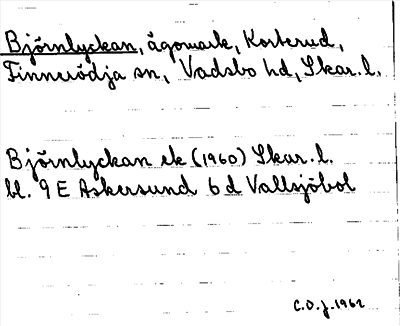 Björnlyckan, ägomark, Korterud,
Finnerödja sn, Vadsbo hd, Skar. l.
Björnlyckan ek (1960) Skar. l.
bl. 9 E Askersund 6 d Vallsjöbol
C.O.J. 1962